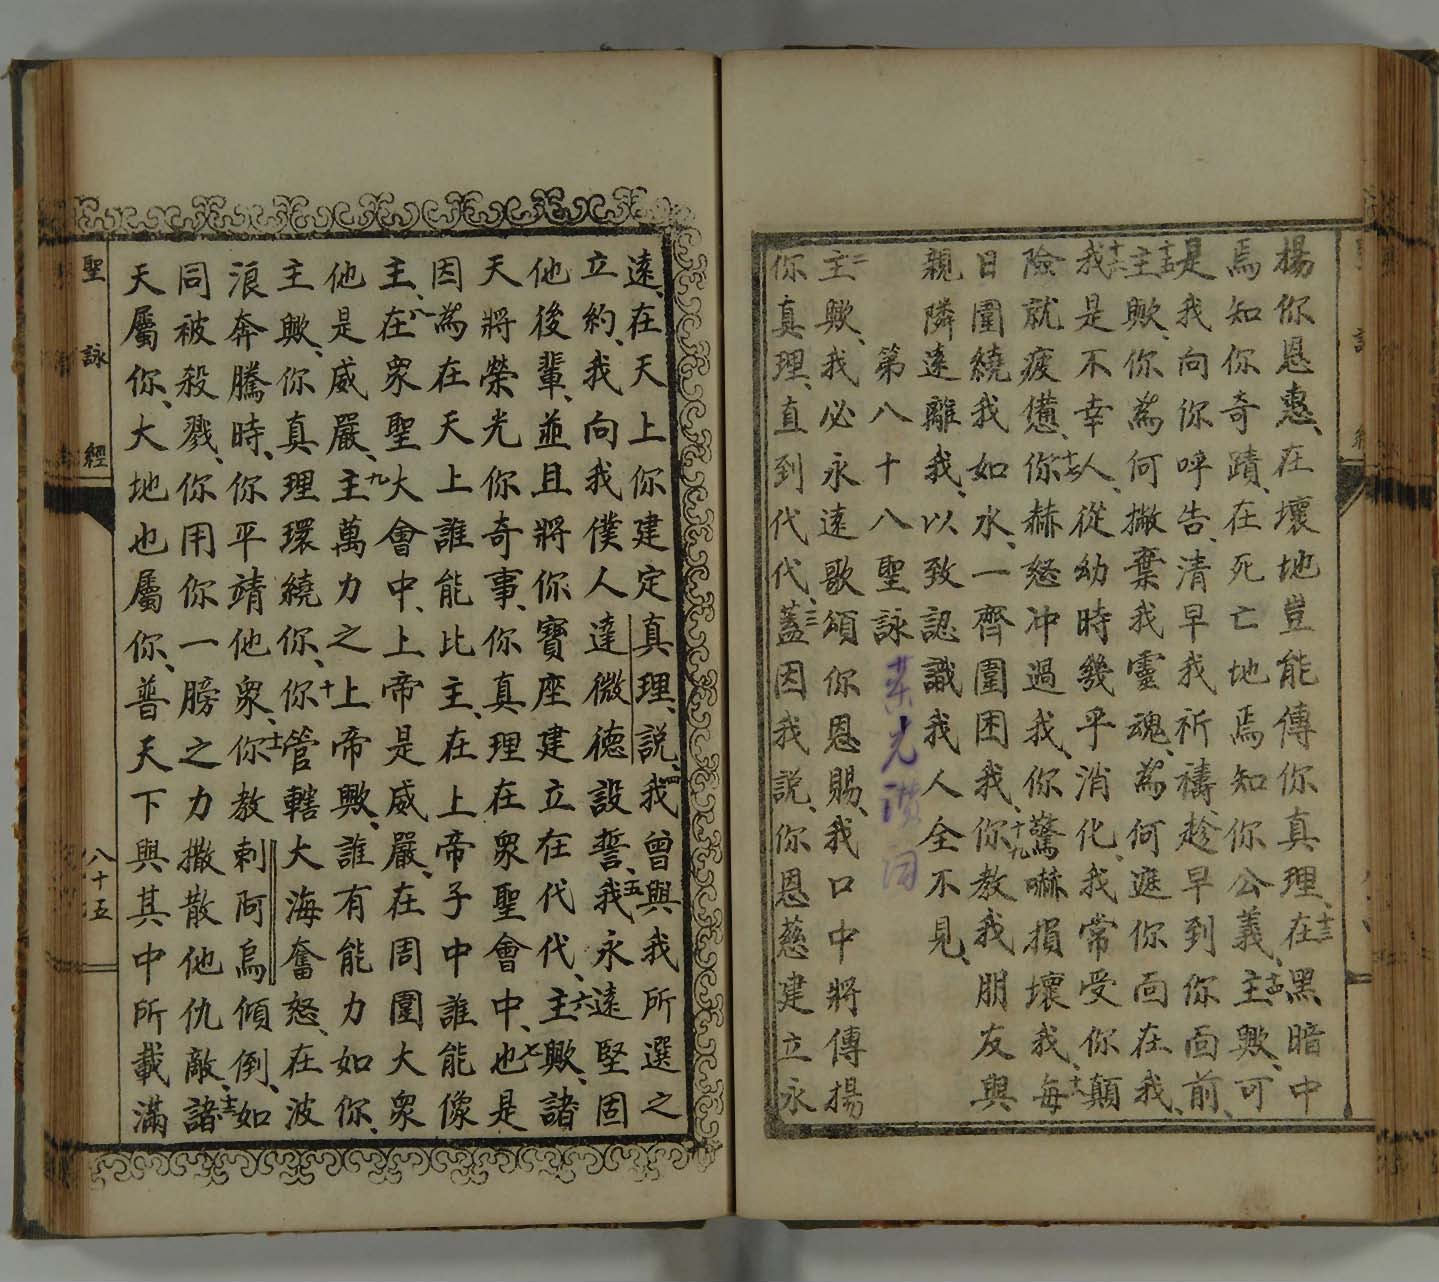 揚你恩惠、在壞地豈能傳你真理、十三在黑暗中
焉知你奇蹟、在死亡地焉知你公義、十四主歟、可
是我向你呼告、清早我祈禱趁早到你面前、
十五主歟、你為何撇棄我靈魂、為何遮你面在我、
十六我是不幸人、從幼時幾乎消化、我常受你顛
險就疲憊、十七你赫怒冲過我、你驚嚇損壞我、十八每
日圍繞我如水、一齊圍困我、十九你教我朋友與
親隣遠離我、以致認識我人全不見、
第八十八聖詠
二主歟、我必永遠歌頌你恩賜、我口中將傳揚
你真理、直到代代、三蓋因我説、你恩慈建立永
遠、在天上你建定真理、説、四我曾與我所選之
立約、我向我僕人達微德設誓、五我永遠堅固
他後輩、並且將你寶座建立在代代、六主歟、諸
天將榮光你奇事、你真理在衆聖會中、七也是
因為在天上誰能比主、在上帝子中誰能像
主、八在衆聖大會中、上帝是威嚴、在周圍大衆
他是威嚴、九主萬力之上帝歟、誰有能力如你、
主歟、你真理環繞你、十你管轄大海奮怒、在波
浪奔騰時、你平靖他衆、十一你教剌阿烏傾倒、如
同被殺戮、你用你一膀之力撒散他仇敵、十二諸
天屬你、大地也屬你、普天下與其中所載滿
聖詠經
八十五